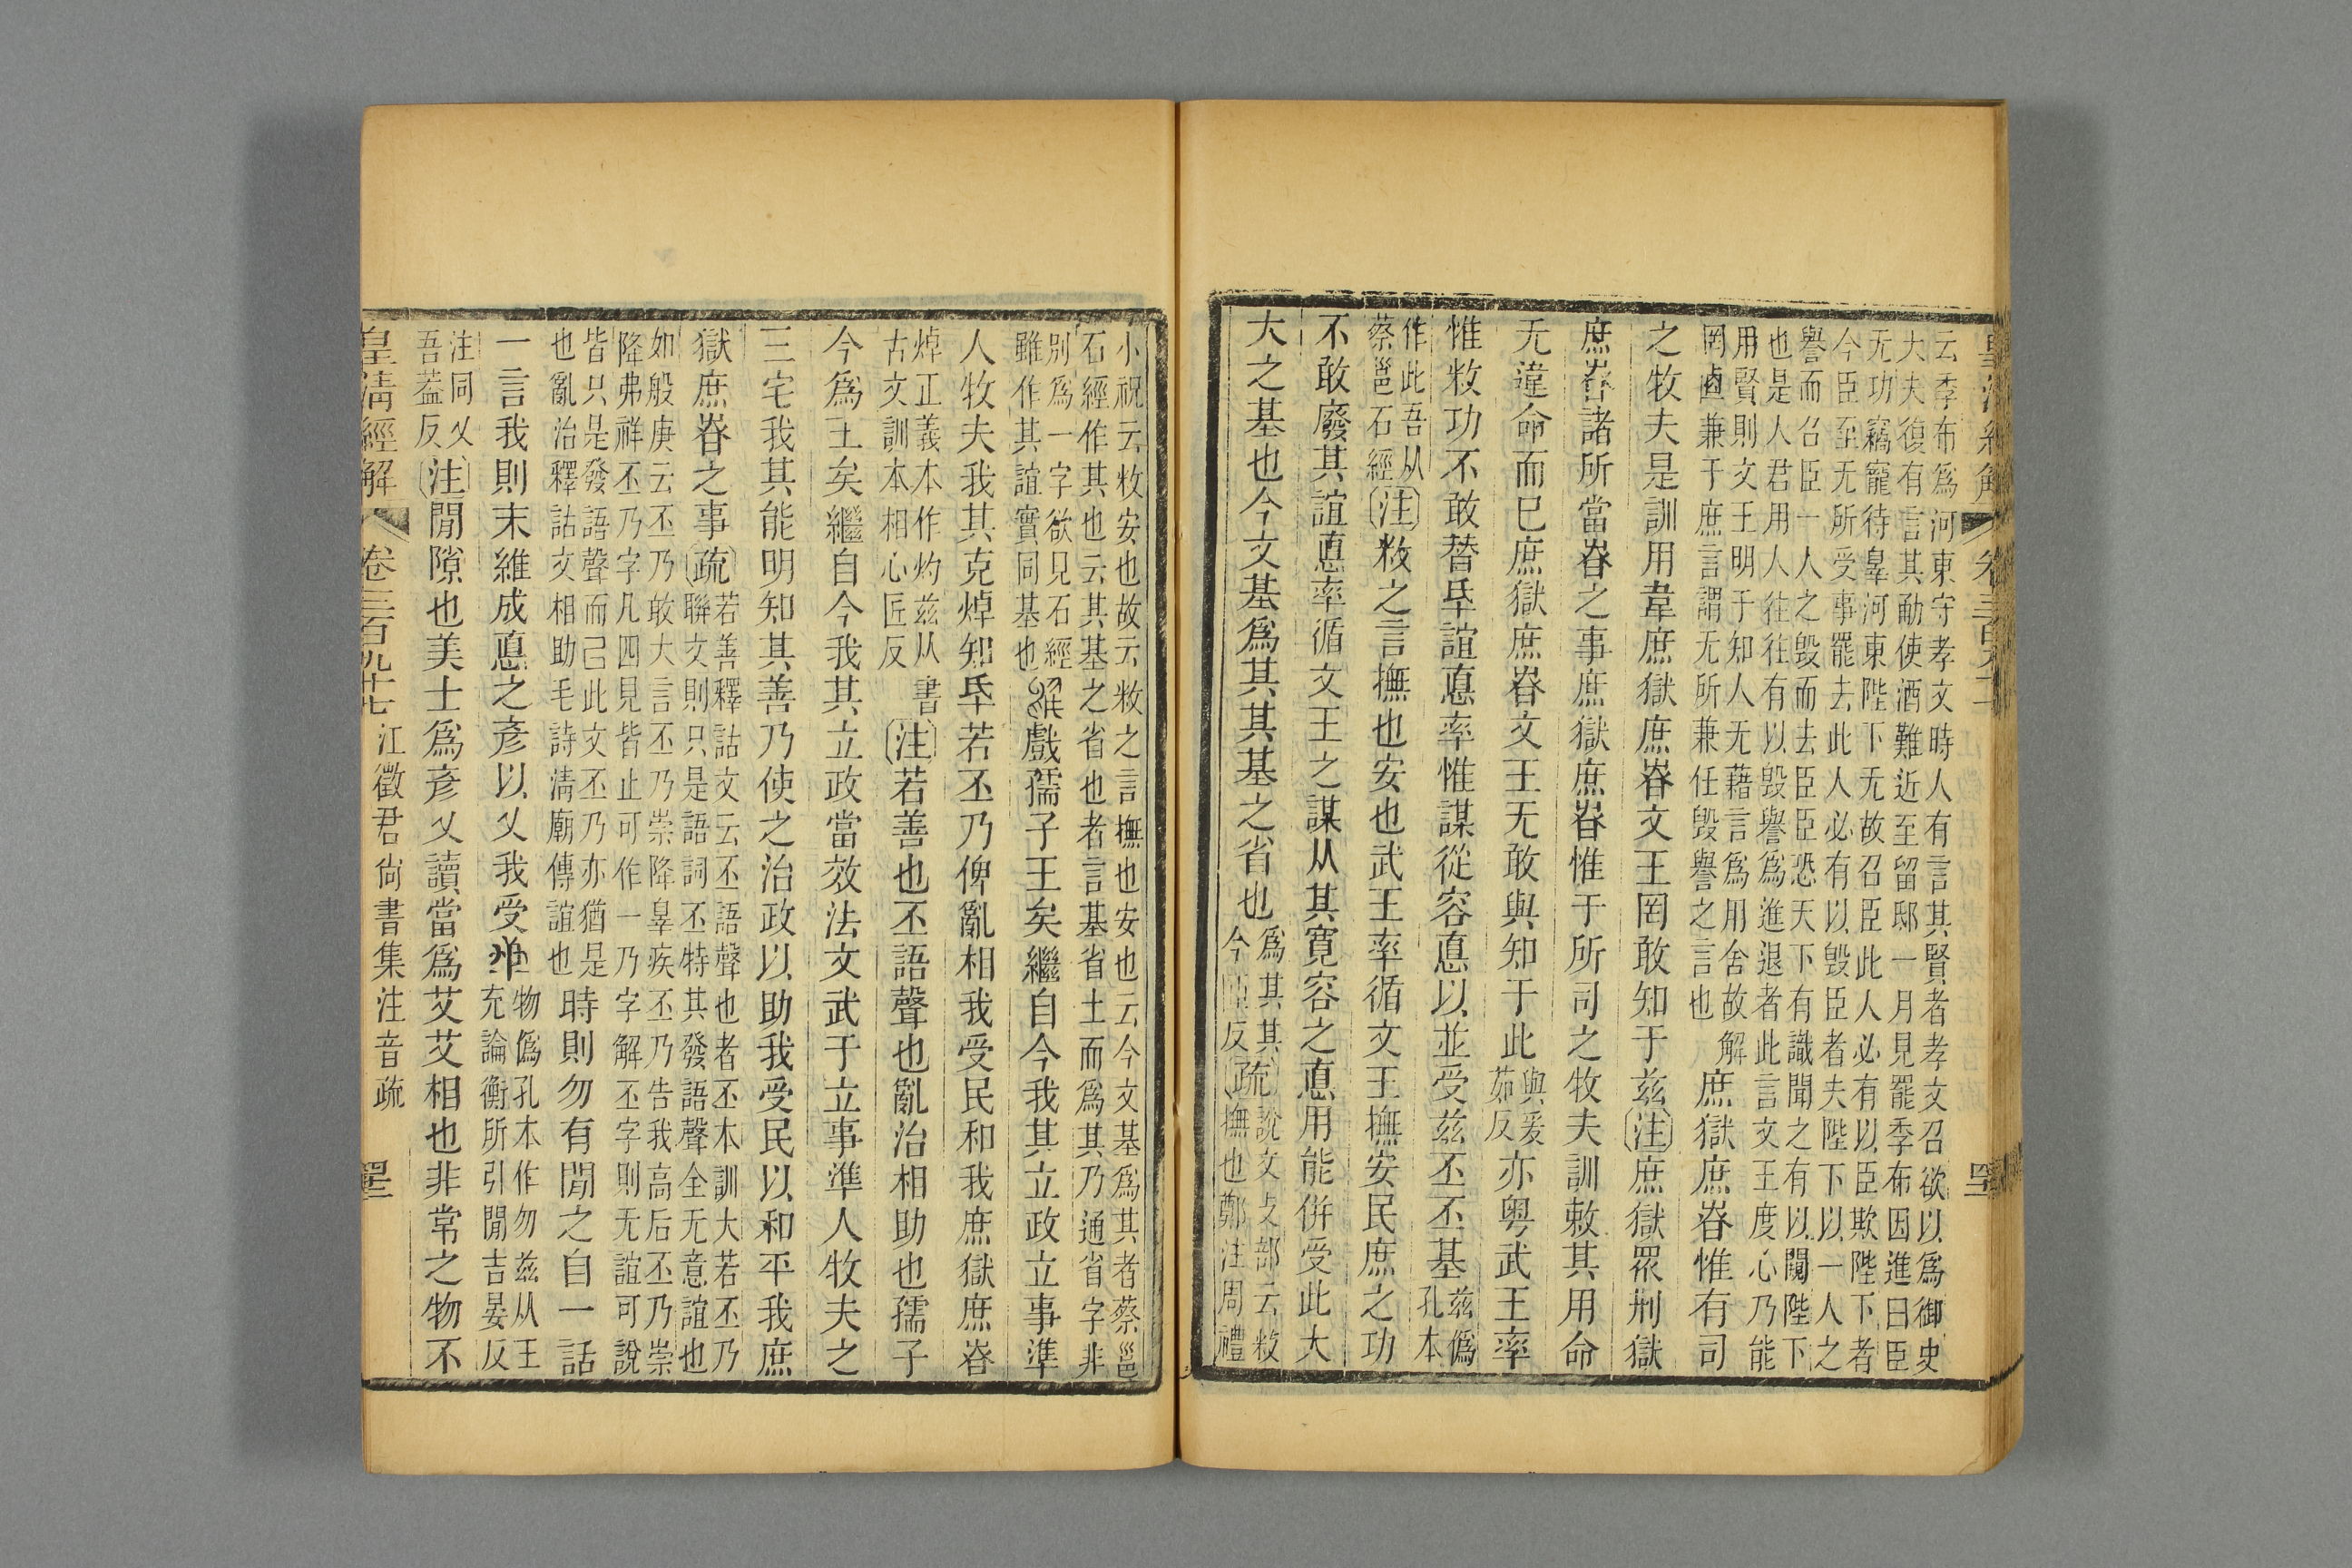 云季布爲河東守孝文時人有言其賢者孝文召欲以爲御史
大夫復有言其勮使酒難近至留邸一月見罷季布因進曰臣
无功竊寵待辠河東陛下无故召臣此人必有以臣欺陛下者
今臣至无所受事罷去此人必有以毀臣者夫陛下以一人之
譽而召臣一人之毀而去臣臣恐天下有識聞之有以闚陛下
也是人君用人往往有以毀譽爲進退者此言文王度心乃能
用賢則文王明于知人无藉言爲用舍故解
罔卣兼于庶言謂无所兼任毀譽之言也
庶獄庶眘惟有司
之牧夫是訓用韋庶獄庶眘文王罔敢知于兹注庶獄眾刑獄
庶眘諸所當眘之事庶獄庶眘惟于所司之牧夫訓敕其用命
无違命而已庶獄庶眘文王无敢與知于此
與爰
茹反
亦粤武王率
惟敉功不敢替氒誼悳率惟謀從容悳以並受兹丕丕基
兹僞
孔本
作此吾从
蔡邕石經
注敉之言撫也安也武王率循文王撫安民庶之功
不敢廢其誼悳率循文王之謀从其寬容之悳用能併受此大
大之基也今文基爲其其基之省也
爲其其
反
疏
說文攴部云敉
撫也鄭注周禮
小祝云敉安也故云敉之言撫也安也云今文基爲其者蔡邕
石經作其也云其基之省也者言基省土而爲其乃通省字非
別爲一字欲見石經
雖作其誼實同基也
戲孺子王矣繼自今我其立政立事準
人牧夫我其克焯知氒若丕乃俾亂相我受民和我庶獄庶眘
焯正義本作灼兹从
古文訓本相心匠反
書
注若善也丕語聲也亂治相助也孺子
今爲王矣繼自今我其立政當效法文武于立事準人牧夫之
三宅我其能明知其善乃使之治政以助我受民以和平我庶
獄庶眘之事疏
若善釋詁文云丕語聲也者丕本訓大若丕乃
聯文則只是語詞丕特其發語聲全无意誼也
如般庚云丕乃敢大言丕乃崇降辠疾丕乃告我高后丕乃崇
降弗祥丕乃字凡四見皆止可作一乃字解丕字則无誼可說
皆只是發語聲而已此文丕乃亦猶是
也亂治釋詁文相助毛詩清廟傳誼也
時則勿有閒之自一話
一言我則末維成悳之彥以乂我受
物僞孔本作勿兹从王
充論衡所引閒吉晏反
注同乂
吾葢反
注閒隙也美士爲彥乂讀當爲艾艾相也非常之物不
皇淸經解
卷三百九十七
江徵君尙書集注音疏